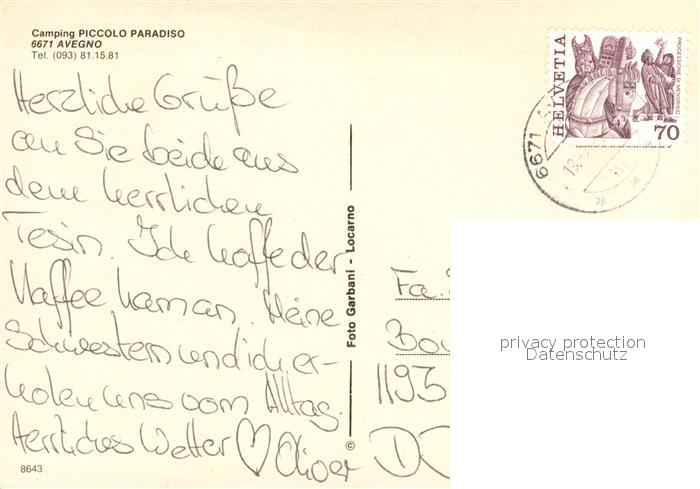 Camping PICCOLO PARADISO
6671 AVEGNO
Tel. (093) 81.15.81
Herzliche Grüße
an Sie beide aus
dem herrlichen
Tesin. Ich hoffe der
Kaffee kam an. Meine
Schwestern und ich er-
holen uns vom Alltag.
Herrliches Wetter ♡
8643
Foto Garbani - Locarno
©
HELVETIA
PROCESSIONE DI MENDRISIO
70
6671
19.
Fa.
1195
privacy protection
Datenschutz